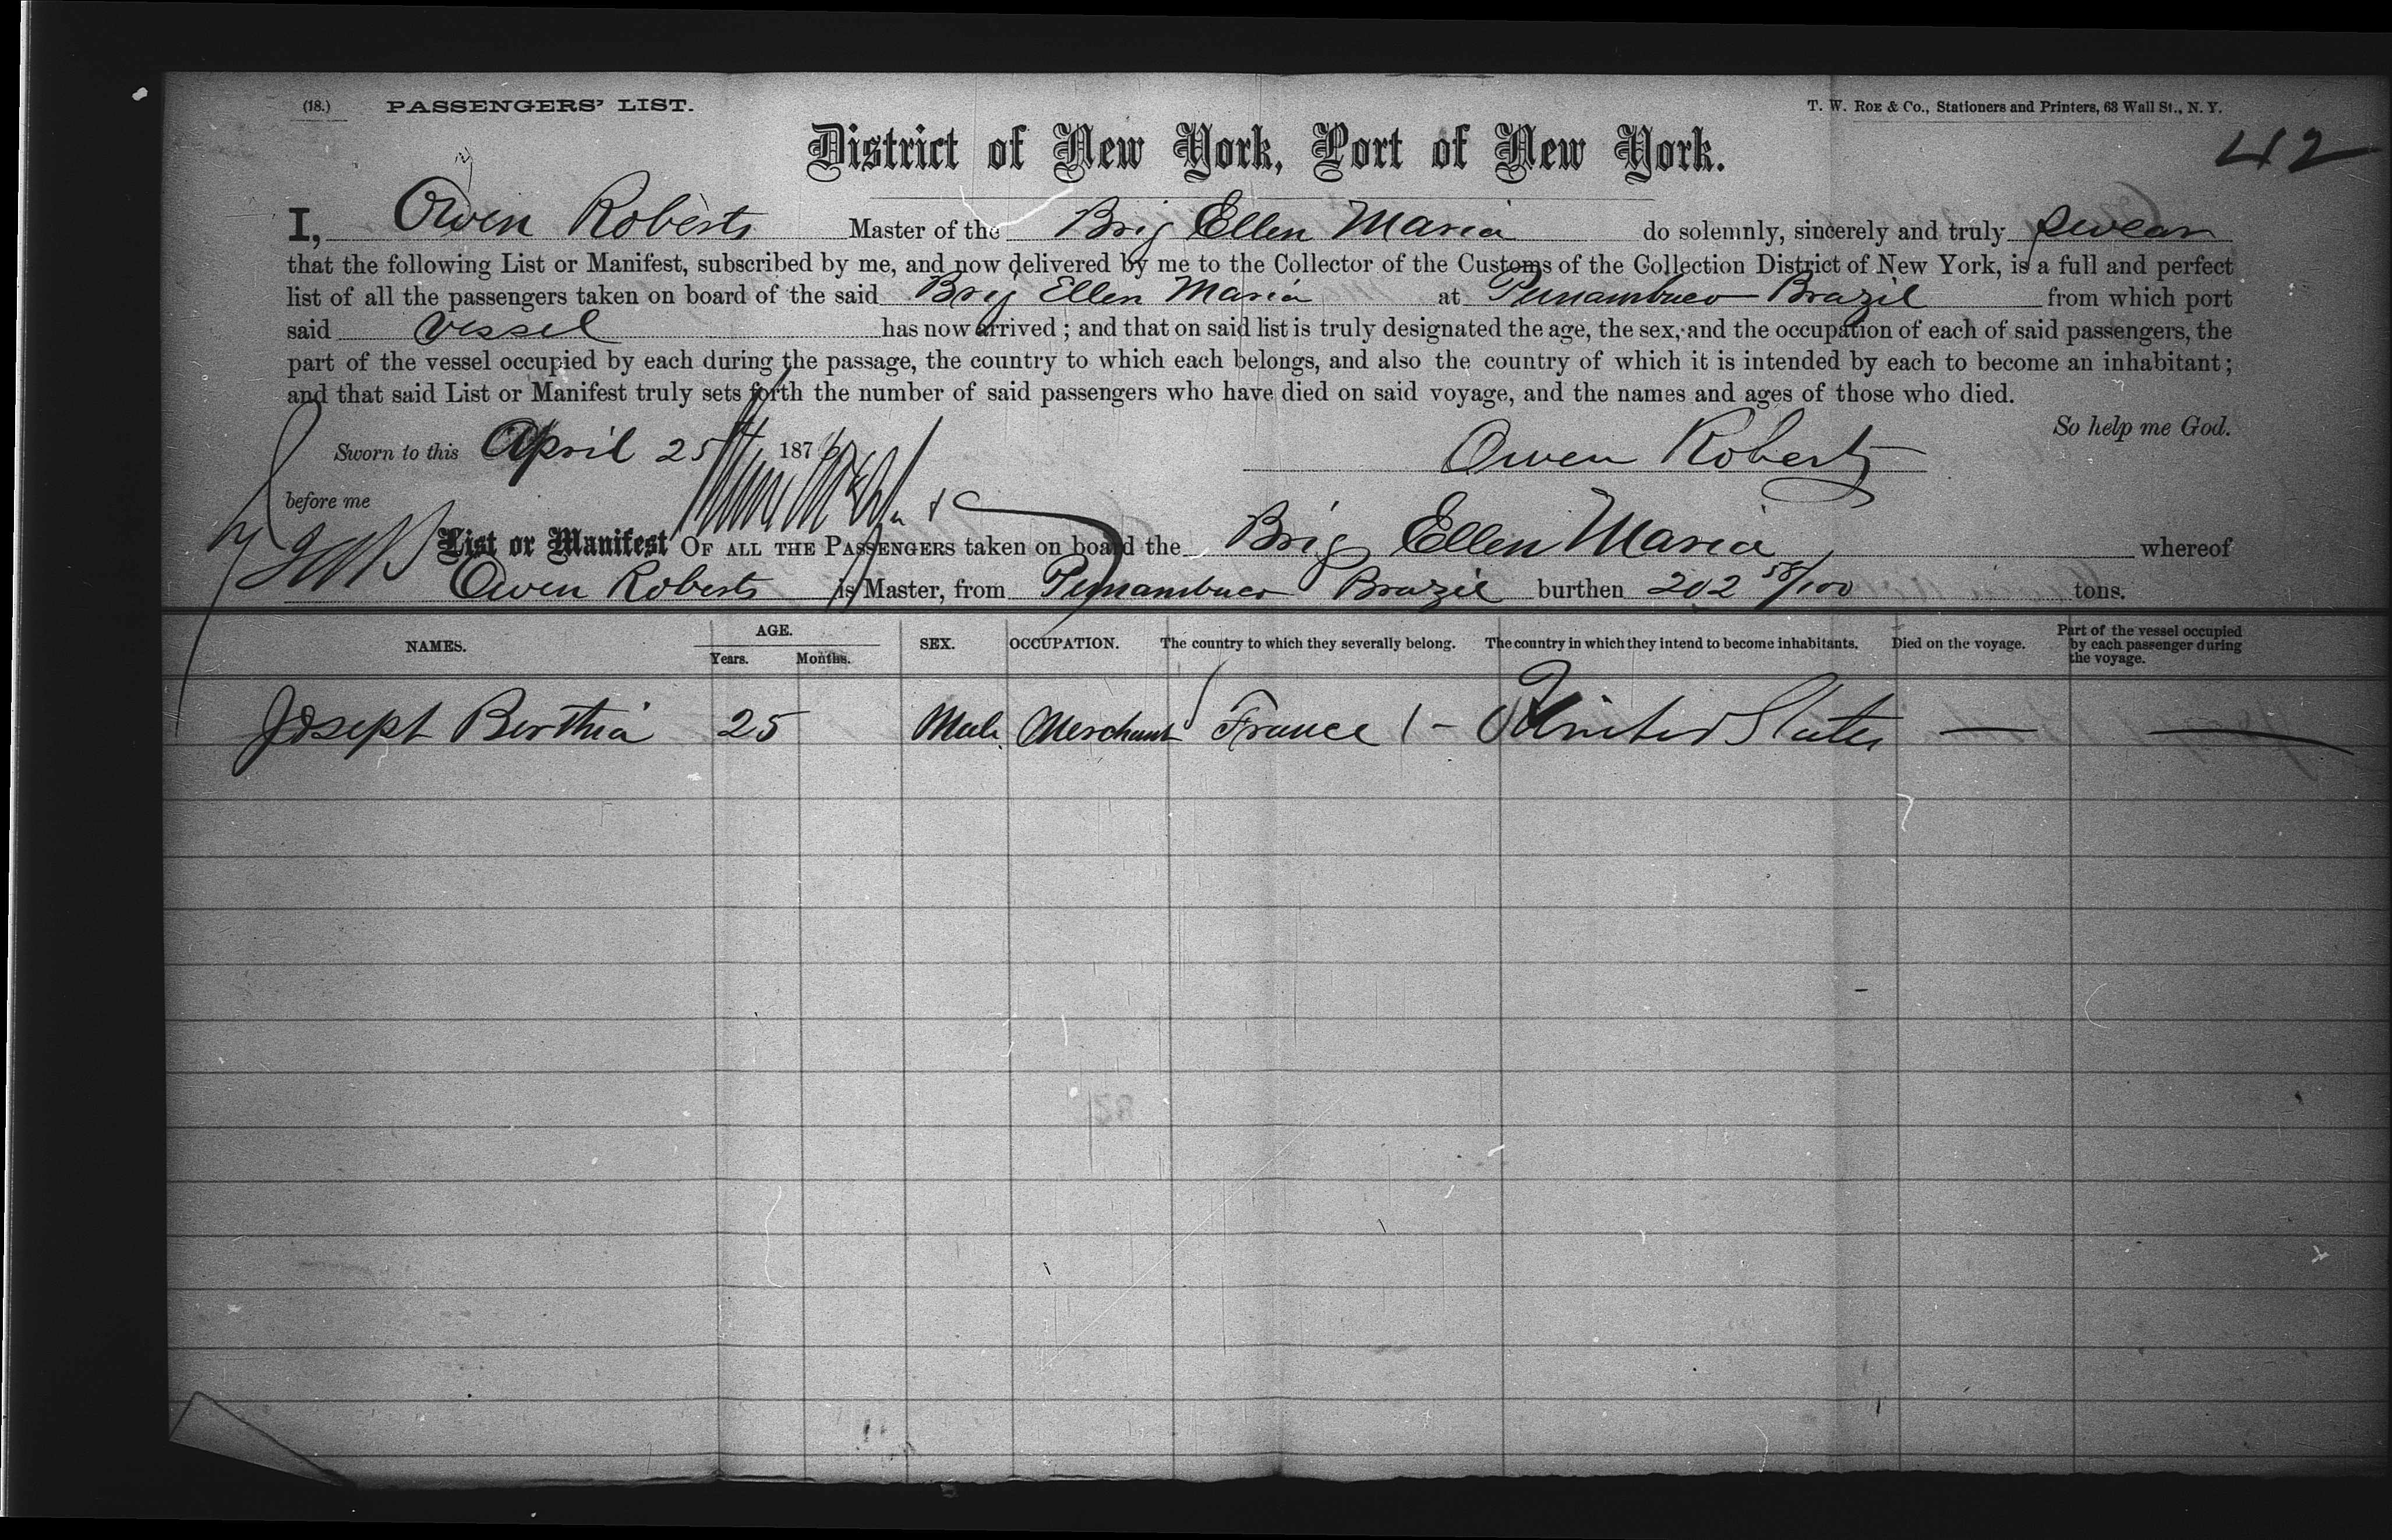 (18.) PASSENGERS' LIST. T. W. ROE & Co., Stationers and Printers, 63 Wall St., N. Y.
District of New York, Port of New York.
42
I, Owen Roberts Master of the Brig Ellen Maria do solemnly, sincerely and truly swear
that the following List or Manifest, subscribed by me, and now delivered by me to the Collector of the Customs of the Collection District of New York, is a full and perfect
list of all the passengers taken on board of the said Brig Ellen Maria at Pernambuco Brazil from which port
said vessel has now arrived; and that on said list is truly designated the age, the sex, and the occupation of each of said passengers, the
part of the vessel occupied by each during the passage, the country to which each belongs, and also the country of which it is intended by each to become an inhabitant;
and that said List or Manifest truly sets forth the number of said passengers who have died on said voyage, and the names and ages of those who died.
So help me God.
Sworn to this April 25 187 Owen Roberts
before me
List or Manifest OF ALL THE PASSENGERS taken on board the Brig Ellen Maria whereof
Owen Roberts is Master, from Pernambuco Brazil burthen 202 58/100 tons.
NAMES. AGE. Years. Months. SEX. OCCUPATION. The country to which they severally belong. The country in which they intend to become inhabitants. Died on the voyage. Part of the vessel occupied by each passenger during the voyage.
Joseph Berthia 25 Male Merchant France United States — —